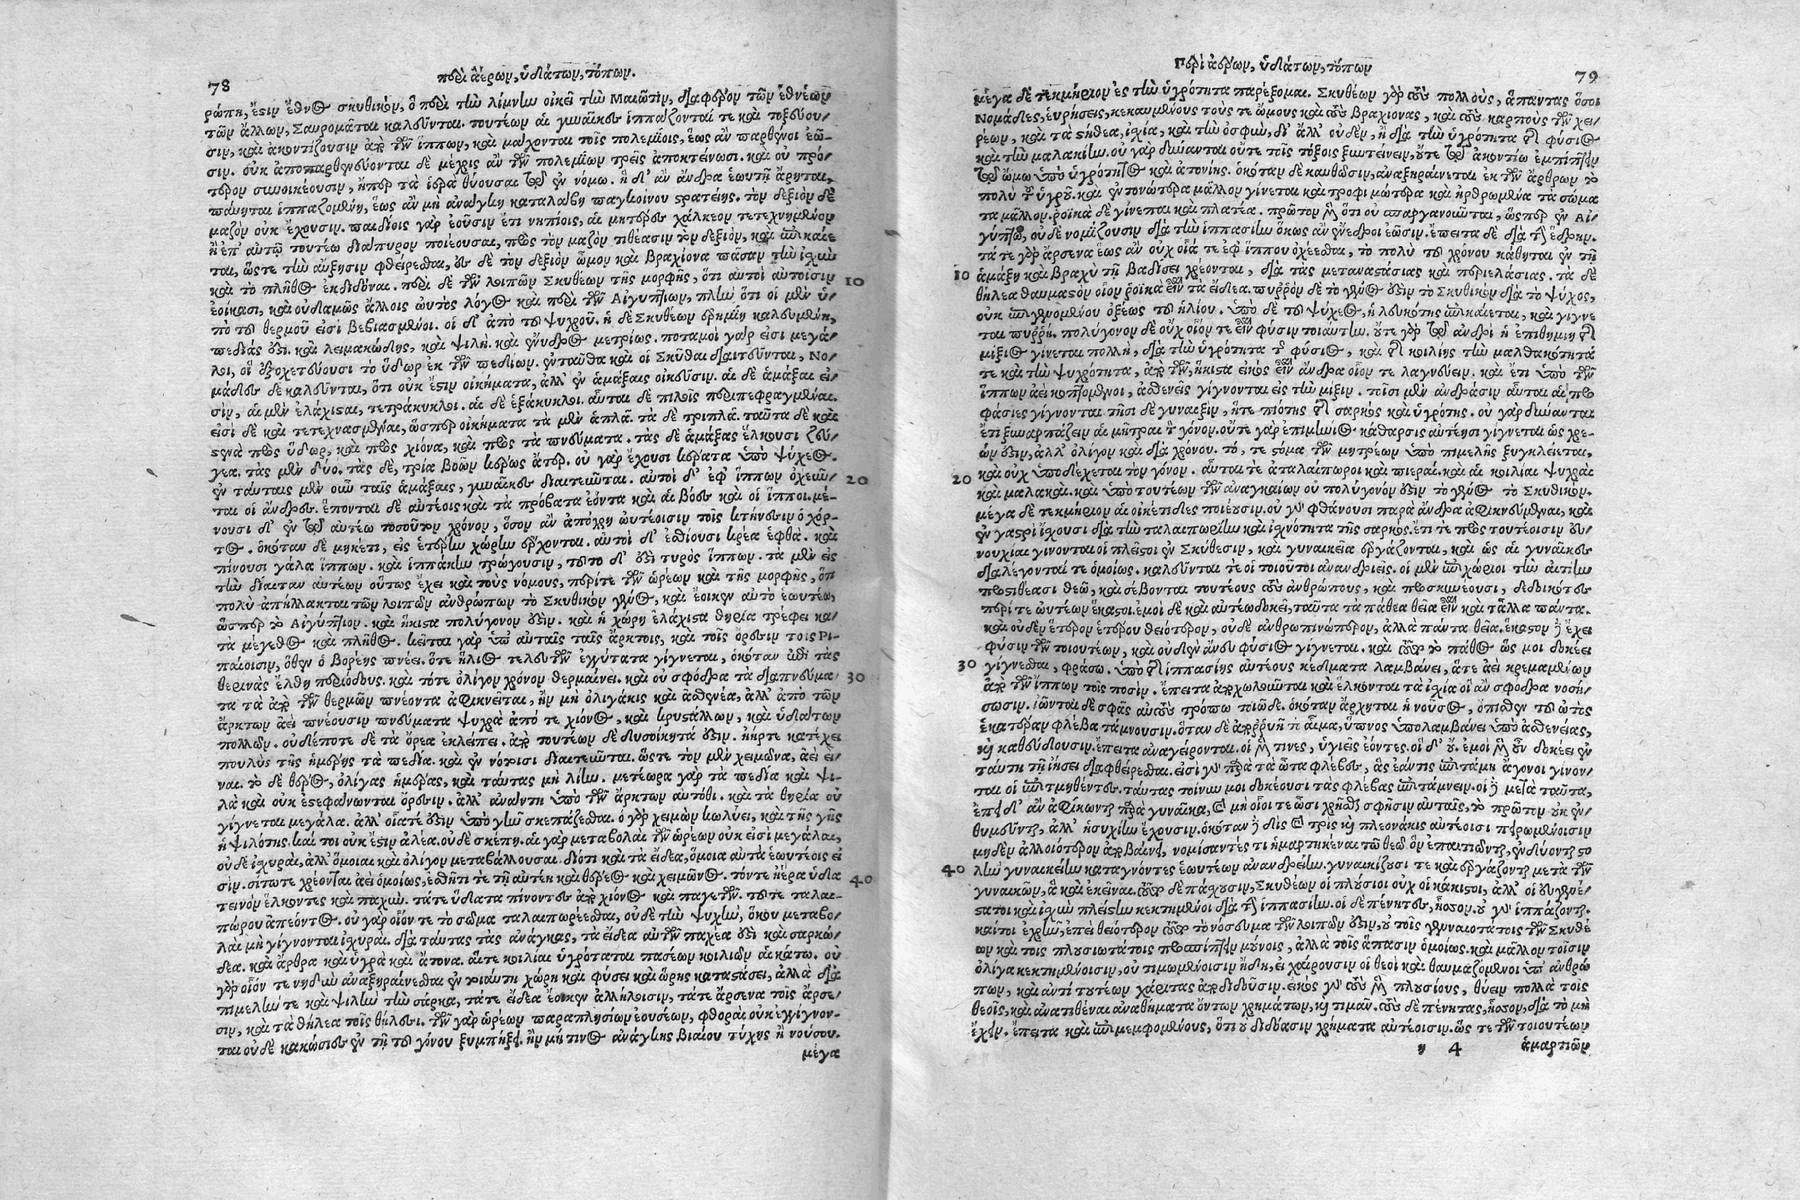 78
περὶ ἀέρων, ὑδάτων, τόπων.
ρώπη, ἔςιν ἔθνος σκυθικὸν, ὃ περὶ τὴν λίμνην οἰκεῖ τὴν Μαιῶτιν, διαφέρον τῶν ἐθνέων
τῶν ἄλλων, Σαυρομάται καλεῦνται. τουτέων αἱ γυναῖκες ἱππάζονταί τε καὶ τοξεύου/
σιν, καὶ ἀκοντίζουσιν ἀπὸ τῶν ἵππων, καὶ μάχονται τοῖς πολεμίοις, ἕως ἂν παρθένοι ἐῶ-
σιν. οὐκ ἀποπαρθενεύονται δὲ μέχρις ἂν τῶν πολεμίων τρεῖς ἀποκτείνωσι. καὶ οὐ πρό/
τερον συνοικέουσιν, ἤπερ τὰ ἱερὰ θύουσαι τὰ ἐν νόμω. ἣ δ' ἂν ἄνδρα ἑωυτῇ ἄρηται,
πάυεται ἱππαζομένη, ἕως ἂν μὴ ἀνάγκη καταλάβη παγκοίνου ςρατείης. τὸν δεξιὸν δὲ
μαζὸν οὐκ ἔχουσιν. παιδίοις γὰρ ἐοῦσιν ἔτι νηπίοις, αἱ μητέρες χάλκεον τετεχνημένον
ἢ ἐπ' αὐτῷ τουτέω διάπυρον ποιέουσαι, πρὸς τὸν μαζὸν τιθέασιν τὸν δεξιὸν, καὶ ἐπικαίε
ται, ὥςτε τὴν αὔξησιν φθείρεσθαι, ἐς δὲ τὸν δεξιὸν ὦμον καὶ βραχίονα πᾶσαν τὴν ἰχὺν
καὶ τὸ πλῆθος ἐκδιδόναι. περὶ δὲ τῶν λοιπῶν Σκυθέων τῆς μορφῆς, ὅτι αὐτοὶ αὐτοῖσιν
10
ἐοίκασι, καὶ οὐδαμῶς ἄλλοις ὡυτὸς λόγος καὶ περὶ τῶν Αἰγυπτίων, πλὴν ὅτι οἱ μὲν ὑ/
πὸ τοῦ θερμοῦ εἰσὶ βεβιασμένοι. οἱ δ' ἀπὸ τοῦ ψυχροῦ. ἡ δὲ Σκυθέων ἐρημίη καλευμένη,
πεδιάς ἐςι. καὶ λειμακώδης, καὶ ψιλὴ. καὶ ἔνυδρος μετρίως. ποταμοὶ γάρ εἰσι μεγά/
λοι, οἳ ἐξοχετεύουσι τὸ ὕδωρ ἐκ τῶν πεδίων. ἐνταῦθα καὶ οἱ Σκῦθαι διαιτεῦνται, Νο/
μάδες δὲ καλεῦνται, ὅτι οὐκ ἔςιν οἰκήματα, ἀλλ' ἐν ἁμάξαις οἰκεῦσιν. αἱ δὲ ἅμαξαι εἰ/
σὶν, αἱ μὲν ἐλάχιςαι, τετράκυκλοι. αἱ δὲ ἑξάκυκλοι. αὗται δὲ πίλοις περιπεφραγμέναι.
εἰσὶ δὲ καὶ τετεχνασμέναι, ὥσπερ οἰκήματα τὰ μὲν ἁπλᾶ. τὰ δὲ τριπλᾶ. ταῦτα δὲ καὶ
ςενὰ πρὸς ὕδωρ, καὶ πρὸς χιόνα, καὶ πρὸς τὰ πνεύματα. τὰς δὲ ἁμάξας ἕλκουσι ζεύ/
γεα. τὰς μὲν δύο. τὰς δὲ, τρία βοῶν κέρως ἄτερ. οὐ γὰρ ἔχουσι κέρατα ὑπὸ ψύχεος.
ἐν ταύταις μὲν οὖν ταῖς ἁμάξαις, γυναῖκες διαιτεῦνται. αὐτοὶ δ' ἐφ' ἵππων ὀχεῦν/
20
ται οἱ ἄνδρες. ἕπονται δὲ αὐτέοις καὶ τὰ πρόβατα ἐόντα καὶ αἱ βόες καὶ οἱ ἵπποι. μέ-
νουσι δ' ἐν τῷ αὐτέω τοσοῦτον χρόνον, ὅσον ἂν ἀπόχρη ὡυτέοισιν τοῖς κτήνεσιν ὁ χόρ-
τος. ὁκόταν δὲ μηκέτι, εἰς ἑτέρην χώρην ἔρχονται. αὐτοὶ δ' ἐσθίουσι κρέα ἑφθὰ. καὶ
πίνουσι γάλα ἵππων. καὶ ἱππάκην τρώγουσιν, τοῦτο δ' ἐςὶ τυρὸς ἵππων. τὰ μὲν εἰς
τὴν δίαιταν αὐτέων οὕτως ἔχει καὶ τοὺς νόμους. περί τε τῶν ὡρέων καὶ τῆς μορφῆς, ὅτι
πολὺ ἀπήλλακται τῶν λοιπῶν ἀνθρώπων τὸ Σκυθικὸν γένος, καὶ ἔοικεν αὐτὸ ἑωυτέω,
ὥσπερ τὸ Αἰγύπτιον. καὶ ἥκιςα πολύγονον ἐςιν. καὶ ἡ χώρη ἐλάχιςα θηρία τρέφει κα/
τὰ μέγεθος καὶ πλῆθος. κεῖται γὰρ ὑπ' αὐταῖς ταῖς ἄρκτοις, καὶ τοῖς ὄρεσιν τοῖς Ρι-
παίοισιν, ὅθεν ὁ Βορέης πνέει. ὅτε ἥλιος τελευτῶν ἐγγύτατα γίγνεται, ὁκόταν ἐπὶ τὰς
θερινὰς ἔλθη περιόδους. καὶ τότε ὀλίγον χρόνον θερμαίνει. καὶ οὐ σφόδρα τὰ δὲ πνεύμα/
30
τα τὰ ἀπὸ τῶν θερμῶν πνέοντα ἀφικνεῖται, ἢν μὴ ὀλιγάκις καὶ ἀσθενέα, ἀλλ' ἀπὸ τῶν
ἄρκτων ἀεὶ πνέουσιν πνεύματα ψυχρὰ ἀπό τε χιόνος, καὶ κρυςάλλων, καὶ ὑδάτων
πολλῶν. οὐδέποτε δὲ τὰ ὄρεα ἐκλείπει. ἀπὸ τουτέων δὲ δυσοίκητά ἐςιν. ἠήρτε κατέχει
πουλὺς τῆς ἡμέρης τὰ πεδία. καὶ ἐν τοῖσι διαιτεῦνται. ὥςτε τὸν μὲν χειμῶνα, ἀεὶ εἶ-
ναι. τὸ δὲ θέρος, ὀλίγας ἡμέρας, καὶ ταύτας μὴ λίην. μετέωρα γὰρ τὰ πεδία καὶ ψι-
λὰ καὶ οὐκ ἐςεφάνωνται ὄρεσιν. ἀλλ' ἀνάντη ὑπὸ τῶν ἄρκτων αὐτόθι. καὶ τὰ θηρία οὐ
γίγνεται μεγάλα. ἀλλ' οἷά τέ ἐςιν ὑπὸ γῆν σκεπάζεσθαι. ὁ γὰρ χειμὼν κωλύει, καὶ τῆς γῆς
ἡ ψιλότης. καί τοι οὐκ ἔςιν ἀλέα. οὐδὲ σκέπη. αἱ γὰρ μεταβολαὶ τῶν ὡρέων οὐκ εἰσὶ μεγάλαι,
οὐδὲ ἰχυραὶ, ἀλλ' ὅμοιαι καὶ ὀλίγον μεταβάλλουσαι. διότι καὶ τὰ εἴδεα, ὅμοια αὐτὰ ἑωυτέοις εἰ
σὶν. σίτωτε χρέονται ἀεὶ ὁμοίως, ἐσθῆτί τε τῇ αὐτέη καὶ θέρεος καὶ χειμῶνος. τόντε ἠέρα ὑδα
40
τεινὸν ἕλκοντες καὶ παχὺν. τάτε ὕδατα πίνοντες ἀπὸ χιόνος καὶ παγετῶν. τοῦτε ταλαι-
πώρου ἀπεόντος. οὐ γὰρ οἷόν τε τὸ σῶμα ταλαιπωρέεσθαι, οὐδὲ τὴν ψυχὴν, ὅκου μεταβο/
λαὶ μὴ γίγνονται ἰχυραὶ. διὰ ταύτας τὰς ἀνάγκας, τὰ εἴδεα αὐτῶν παχέα ἐςὶ καὶ σαρκώ/
δεα. καὶ ἄρθρα καὶ ὑγρὰ καὶ ἄτονα. αἵτε κοιλίαι ὑγρόταται πασέων κοιλιῶν αἱ κάτω. οὐ
γὰρ οἷόν τε νηδὺν ἀναξηραίνεσθαι ἐν τοιαύτη χώρη καὶ φύσει καὶ ὥρης καταςάσει, ἀλλὰ διὰ
πιμελήν τε καὶ ψιλὴν τὴν σάρκα, τάτε εἴδεα ἔοικεν ἀλλήλοισιν, τάτε ἄρσενα τοῖς ἄρσε/
σιν, καὶ τὰ θήλεα τοῖς θήλεσι. τῶν γὰρ ὡρέων παραπλησίων ἐουσέων, φθοραὶ οὐκ ἐγγίγνον-
ται οὐδὲ κακώσιες ἐν τῇ τοῦ γόνου ξυμπήξει. ἢν μή τινος ἀνάγκης βιαίου τύχης ἢ νούσου.
μέγα
Περὶ ἀέρων, ὑδάτων, τόπων
79
μέγα δὲ τεκμήριον ἐς τὴν ὑγρότητα παρέξομαι. Σκυθέων γὰρ τοὺς πολλοὺς, ἅπαντας ὅσοι
Νομάδες, εὑρήσεις, κεκαυμένους τούς τε ὤμους καὶ τοὺς βραχίονας, καὶ τοὺς καρποὺς τῶν χει/
ρέων, καὶ τὰ ςήθεα, ἰχία, καὶ τὴν ὀσφὺν, δι' ἄλλ' οὐδὲν, ἢ διὰ τὴν ὑγρότητα τῆς φύσιος
καὶ τὴν μαλακίην. οὐ γὰρ δύνανται οὔτε τοῖς τόξοις ξυντείνειν, οὔτε τῷ ἀκοντίω ἐμπίπτειν
τῷ ὤμω ὑπὸ ὑγρότητος καὶ ἀτονίης. ὁκόταν δὲ καυθῶσιν, ἀναξηραίνεται ἐκ τῶν ἄρθρων τὸ
πολὺ τοῦ ὑγροῦ. καὶ ἐντονώτερα μᾶλλον γίνεται καὶ τροφιμώτερα καὶ ἠρθρωμένα τὰ σώμα
τα μᾶλλον. ῥοϊκὰ δὲ γίνεται καὶ πλατέα. πρῶτον μὲν ὅτι οὐ σπαργανοῦνται, ὥςπερ ἐν Αἰ/
γύπτω, οὐδὲ νομίζουσιν διὰ τὴν ἱππασίην ὅκως ἂν εὔεδροι ἐῶσιν. ἔπειτα δὲ διὰ τὴν ἕδρην.
τά τε γὰρ ἄρσενα ἕως ἂν οὐχ οἷά τε ἐφ' ἵππου ὀχέεσθαι, τὸ πολὺ τοῦ χρόνου κάθηται ἐν τῇ
10
ἁμάξη καὶ βραχὺ τῇ βαδίσει χρέονται, διὰ τὰς μεταναςάσιας καὶ περιελάσιας. τὰ δὲ
θήλεα θαυμαςὸν οἷον ῥοϊκὰ εἶναι τὰ εἴδεα. πυρρὸν δὲ τὸ γένος ἐςὶν τὸ Σκυθικὸν διὰ τὸ ψύχος,
οὐκ ἐπιγενομένου ὀξέως τοῦ ἡλίου. ὑπὸ δὲ τοῦ ψύχεος, ἡ λευκότης ἐπικαίεται, καὶ γίγνε
ται πυρρή. πολύγονον δὲ οὐχ οἷόν τε εἶναι φύσιν τοιαύτην. οὔτε γὰρ τῷ ἀνδρὶ ἡ ἐπιθυμίη τῆς
μίξιος γίνεται πολλὴ, διὰ τὴν ὑγρότητα τῆς φύσιος, καὶ τῆς κοιλίης τὴν μαλθακότητά
τε καὶ τὴν ψυχρότητα, ἀπὸ τῶν, ἥκιςα εἰκὸς εἶναι ἄνδρα οἷόν τε λαγνεύειν. καὶ ἔτι ὑπὸ τῶν
ἵππων ἀεὶ κοπτόμενοι, ἀσθενεῖς γίγνονται εἰς τὴν μίξιν. τοῖσι μὲν ἀνδράσιν αὗται αἱ προ
φάσιες γίγνονται τῇσι δὲ γυναιξὶν, ἥτε πιότης τῆς σαρκὸς καὶ ὑγρότης. οὐ γὰρ δύνανται
ἔτι ξυναρπάζειν αἱ μῆτραι τὸν γόνον. οὔτε γὰρ ἐπιμήνιος κάθαρσις αὐτέῃσι γίγνεται ὡς χρε-
ών ἐςιν, ἀλλ' ὀλίγον καὶ διὰ χρόνου. τό, τε ςόμα τῶν μητρέων ὑπὸ πιμελῆς ξυγκλείεται,
καὶ οὐχ ὑποδέχεται τὸν γόνον. αὗταί τε ἀταλαίπωροι καὶ πιεραὶ. καὶ αἱ κοιλίαι ψυχραὶ
20
καὶ μαλακαὶ. καὶ ὑπὸ τουτέων τῶν ἀναγκαίων οὐ πολύγονόν ἐςιν τὸ γένος τὸ Σκυθικὸν.
μέγα δὲ τεκμήριον αἱ οἰκέτιδες ποιέουσιν. οὐ γὰρ φθάνουσι παρὰ ἄνδρα ἀφικνεύμεναι, καὶ
ἐν γαςρὶ ἴχουσι διὰ τὴν ταλαιπωρίην καὶ ἰχνότητα τῆς σαρκὸς. ἔτι τε πρὸς τουτέοισιν εὐ/
νουχίαι γίνονται οἱ πλεῖςοι ἐν Σκύθεσιν, καὶ γυναικεῖα ἐργάζονται, καὶ ὡς αἱ γυναῖκες
διαλέγονταί τε ὁμοίως. καλεῦνταί τε οἱ τοιοῦτοι ἀνανδριεῖς. οἱ μὲν ἐπιχώριοι τὴν αἰτίην
προςιθέασι θεῶ, καὶ σέβονται τουτέους τοὺς ἀνθρώπους, καὶ προσκυνέουσι, δεδοικότες
περί τε ὡυτέων ἕκαςοι. ἐμοὶ δὲ καὶ αὐτέω δοκεῖ, ταῦτα τὰ πάθεα θεῖα εἶναι καὶ τἆλλα πάντα.
καὶ οὐδὲν ἕτερον ἑτέρου θειότερον, οὐδὲ ἀνθρωπινώτερον, ἀλλὰ πάντα θεῖα. ἕκαςον δὲ ἔχει
φύσιν τῶν τοιουτέων, καὶ οὐδὲν ἄνευ φύσιος γίγνεται. καὶ τοῦτο τὸ πάθος ὥς μοι δοκέει
30
γίγνεσθαι, φράσω. ὑπὸ τῆς ἱππασίης αὐτέους κέδματα λαμβάνει, ἅτε ἀεὶ κρεμαμένων
ἀπὸ τῶν ἵππων τοῖς ποσὶν. ἔπειτα ἀποχωλοῦνται καὶ ἕλκονται τὰ ἰχία οἳ ἂν σφόδρα νοσή/
σωσιν. ἰῶνται δὲ σφᾶς αὐτοὺς τρόπω τοιῷδε. ὁκόταν ἄρχηται ἡ νοῦσος, ὄπιθεν τοῦ ὠτὸς
ἑκατέραν φλέβα τάμνουσιν. ὅταν δὲ ἀπορρυῆ τὸ αἷμα, ὕπνος ὑπολαμβάνει ὑπὸ ἀσθενείας,
καὶ καθεύδουσιν. ἔπειτα ἀναγείρονται. οἱ μέν τινες, ὑγιεῖς ἐόντες. οἱ δ' οὔ. ἐμοὶ μὲν οὖν δοκέει ἐν
ταύτη τῇ ἰήσει διαφθείρεσθαι. εἰσὶ γὰρ παρὰ τὰ ὦτα φλέβες, ἃς ἐάν τις ἐπιτάμη ἄγονοι γίνον/
ται οἱ ἐπιτμηθέντες. ταύτας τοίνυν μοι δοκέουσι τὰς φλέβας ἐπιτάμνειν. οἱ δὲ μετὰ ταῦτα,
ἐπειδ' ἂν ἀφίκωνται παρὰ γυναῖκα, καὶ μὴ οἷοί τε ὦσι χρῆσθαι σφῆσιν αὐταῖς, τὸ πρῶτον οὐκ ἐν/
θυμεῦνται, ἀλλ' ἡσυχίην ἔχουσιν. ὁκόταν δὲ δὶς καὶ τρὶς καὶ πλεονάκις αὐτέοισι πειρωμένοισιν
μηδὲν ἀλλοιότερον ἀποβαίνει, νομίσαντές τι ἡμαρτηκέναι τῶ θεῶ ὃν ἐπαιτιῶνται, ἐνδύονται ςο
40
λὴν γυναικείην καταγνόντες ἑωυτέων ἀνανδρείην. γυναικίζουσί τε καὶ ἐργάζονται μετὰ τῶν
γυναικῶν, ἃ καὶ ἐκεῖναι. τοῦτο δὲ πάχουσιν, Σκυθέων οἱ πλούσιοι οὐχ οἱ κάκιςοι, ἀλλ' οἱ εὐγενέ/
ςατοι καὶ ἰχὺν πλείςην κεκτημένοι διὰ τὴν ἱππασίην. οἱ δὲ πένητες, ἧσσον. οὐ γὰρ ἱππάζονται.
καίτοι ἐχρῆν, ἐπεὶ θειότερον τοῦτο τὸ νόσευμα τῶν λοιπῶν ἐςιν, οὐ τοῖς γενναιοτάτοις τῶν Σκυθέ
ων καὶ τοῖς πλουσιωτάτοις προσπίπτειν μούνοις, ἀλλὰ τοῖς ἅπασιν ὁμοίως. καὶ μᾶλλον τοῖσιν
ὀλίγα κεκτημένοισιν, οὐ τιμωμένοισιν ἤδη, εἰ χαίρουσιν οἱ θεοὶ καὶ θαυμαζόμενοι ὑπ' ἀνθρώ
πων, καὶ ἀντὶ τουτέων χάριτας ἀποδιδοῦσιν. εἰκὸς γὰρ τοὺς μὲν πλουσίους, θύειν πολλὰ τοῖς
θεοῖς, καὶ ἀνατιθέναι ἀναθήματα ὄντων χρημάτων, καὶ τιμᾶν. τοὺς δὲ πένητας, ἧσσον, διὰ τὸ μὴ
ἔχειν. ἔπειτα καὶ ἐπιμεμφομένους, ὅτι οὐ διδόασιν χρήματα αὐτέοισιν. ὥς τε τῶν τοιουτέων
η 4
ἁμαρτιῶν